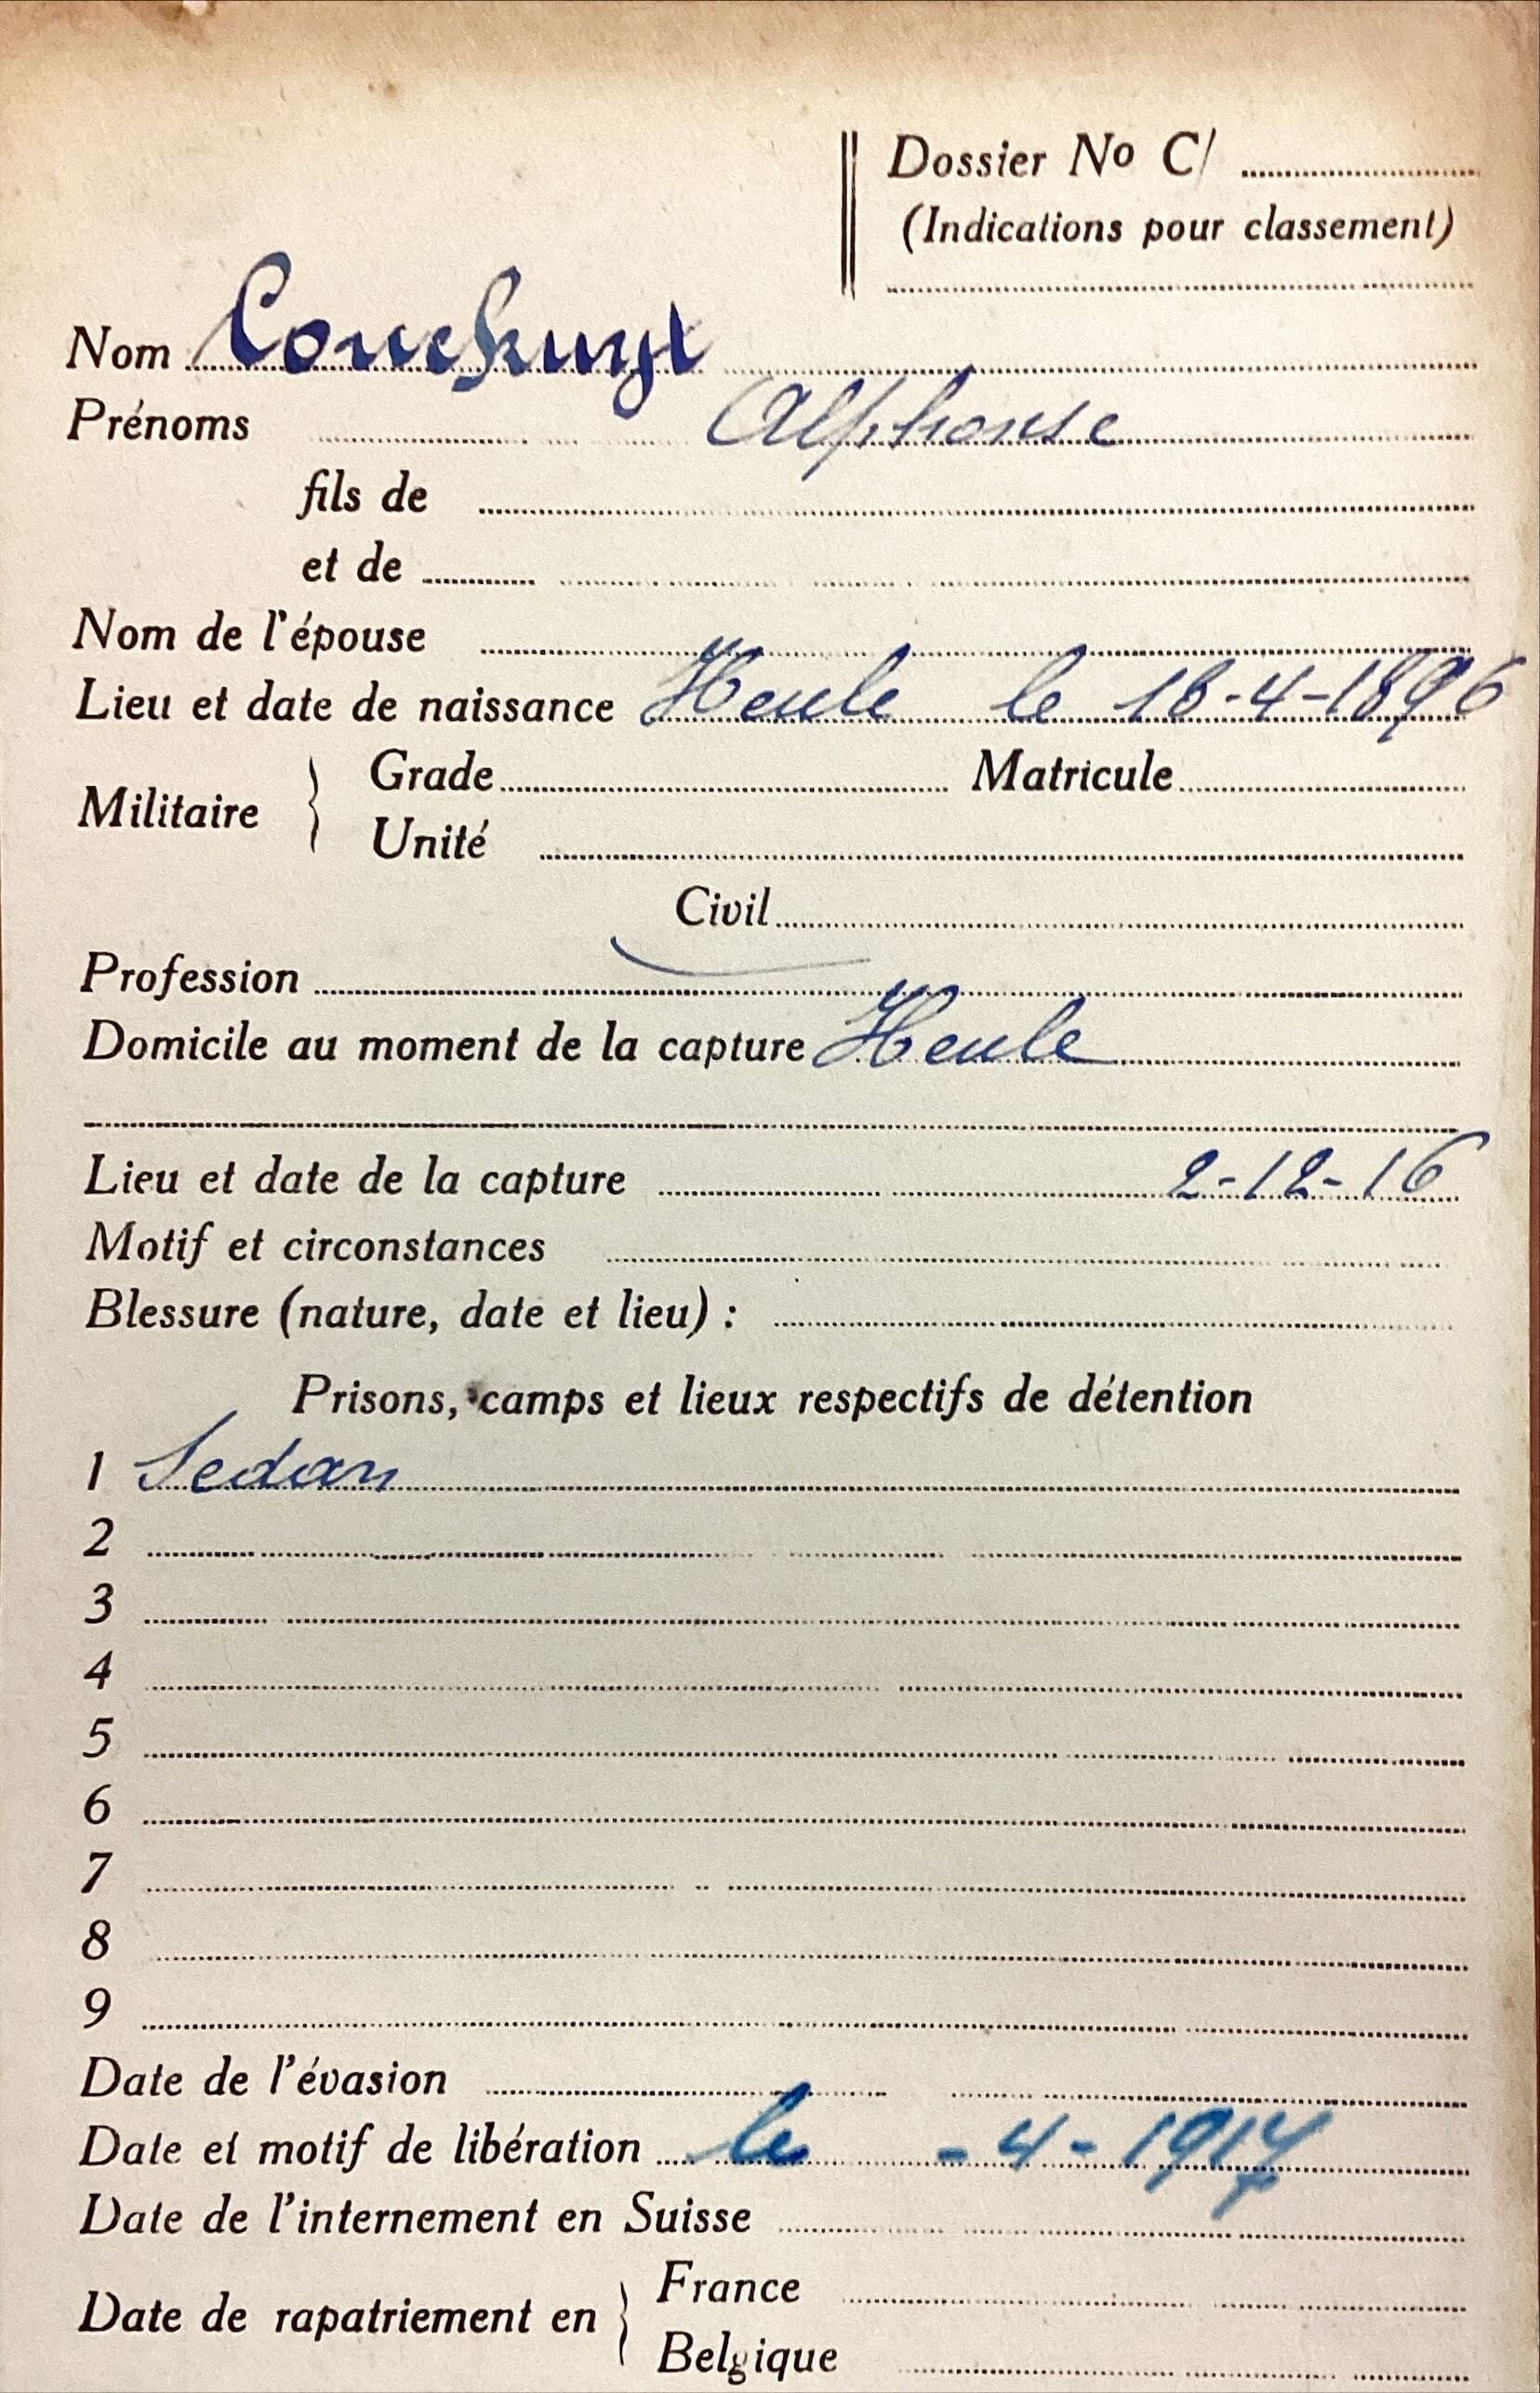 Dossier No C/
(Indications pour classement)
Nom Couckuyt
Prénoms Alphonse
fils de
et de
Nom de l'épouse
Lieu et date de naissance Heule le 18-4-1896
Militaire } Grade Matricule
Unité
Civil
Profession
Domicile au moment de la capture Heule
Lieu et date de la capture 2-12-16
Motif et circonstances
Blessure (nature, date et lieu) :
Prisons, camps et lieux respectifs de détention
1 Sedan
2
3
4
5
6
7
8
9
Date de l'évasion
Date et motif de libération le -4-1917
Date de l'internement en Suisse
Date de rapatriement en } France
Belgique